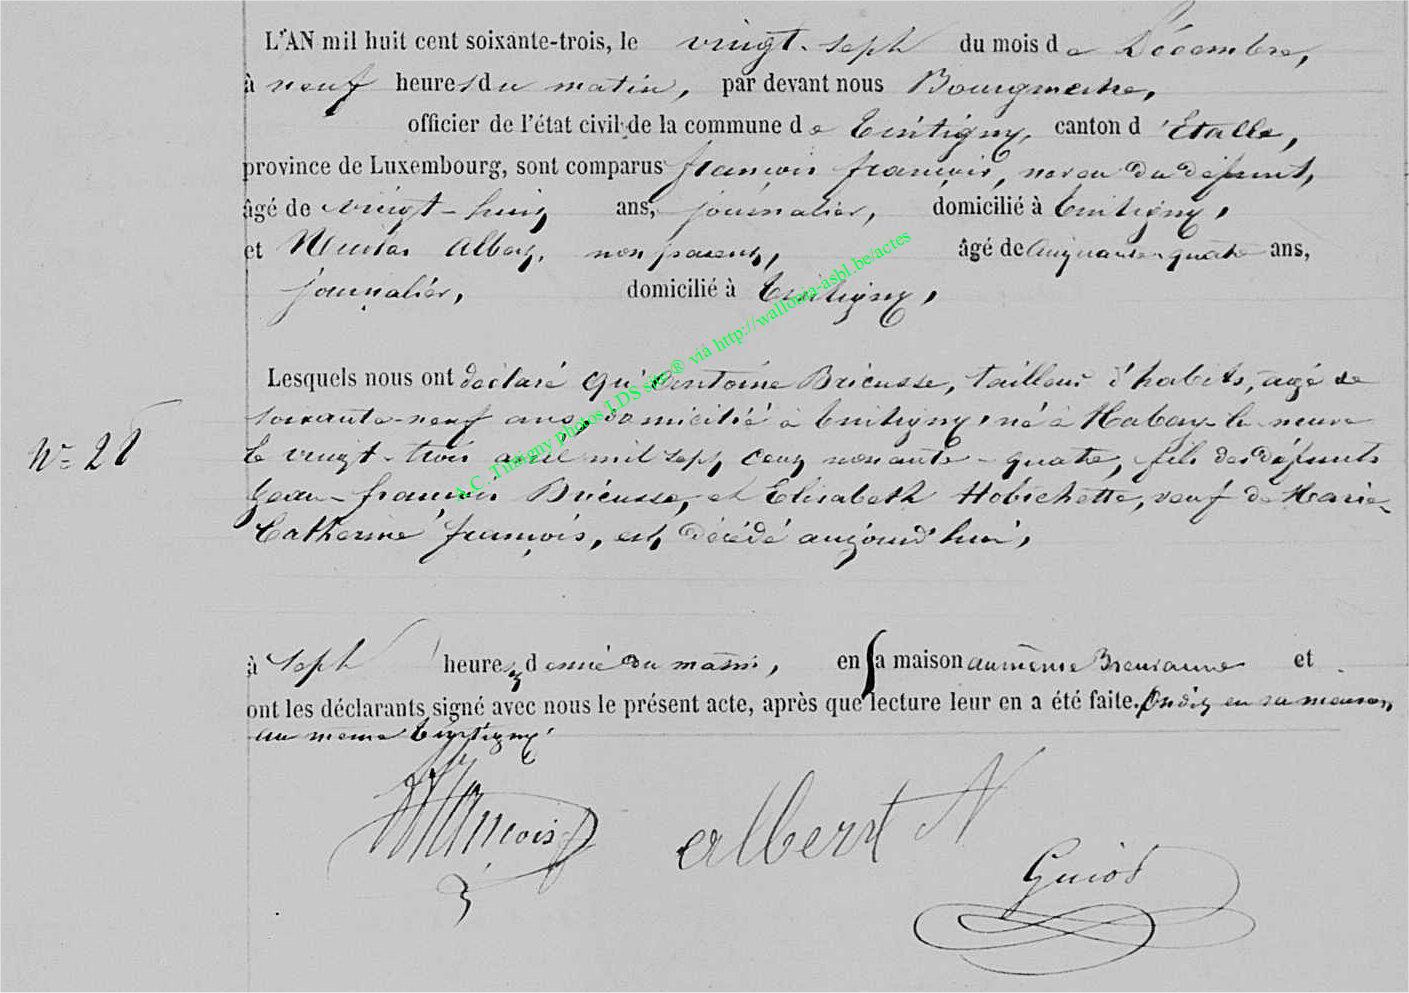 L'AN mil huit cent soixante-trois, le vingt-sept du mois de Décembre,
à neuf heures du matin, par devant nous Bourgmestre,
officier de l'état civil de la commune de Tintigny, canton d'Etalle,
province de Luxembourg, sont comparus françois françois, neveu du défunt,
âgé de vingt-huit ans, journalier, domicilié à Tintigny,
et Nicolas Albert, non parent, âgé de cinquante-quatre ans,
journalier, domicilié à Tintigny,
Lesquels nous ont déclaré qu'Antoine Bricusse, tailleur d'habits, âgé de
soixante-neuf ans, domicilié à Tintigny, né à Habay-la-neuve
N° 28
le vingt-trois avril mil sept cent nonante-quatre, fils des défunts
Jean-françois Bricusse, et Elisabeth Hobschette, veuf de Marie-
Catherine françois, est décédé aujourd'hui,
à sept heures et demie du matin, en sa maison au même et
ont les déclarants signé avec nous le présent acte, après que lecture leur en a été faite. On dit en sa maison
au meme Tintigny.
françois
albert N
Guiot
A.C. Tintigny photos LDS site® via http://wallonia-asbl.be/actes